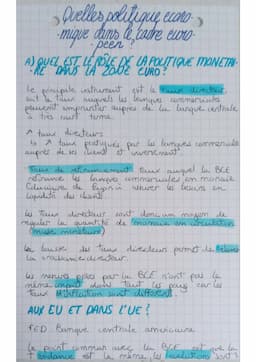 Quelles politique econo-
mique dans le cadre euro-
péen ?
A) QUEL EST LE RÔLE DE LA POLITIQUE MONÉTAI-
RE DANS LA ZONE EURO?
Le principale instrument est le taux directeur,
soit le taux auquels les banques commerciales
peuvent emprunter auprès de la banque centrale
à très court terme.
↗ taux directeurs
↳ ↗ taux pratiqués par les banques commerciales
auprès de ses client et inversement
Taux de refinancement: taux auquel la BCE
refinance les banques commerciales en monnaie
de façon à couvrir les besoins en
liquidité des
Les taux directeur sont donc un moyen de
réguler la quantité de monnaie en circulation
(masse monétaire)
La baisse des taux directeurs permet de
la croissance
Les mesures prises par la BCE n'ont pas le
même impact dans tout les pays car les
taux d'inflation sont différents
AUX EU ET DANS L'UE ?
FED: Banque centrale américaine
Le point commun avec la BCE est que la
tendance est la même, les évolutions sont